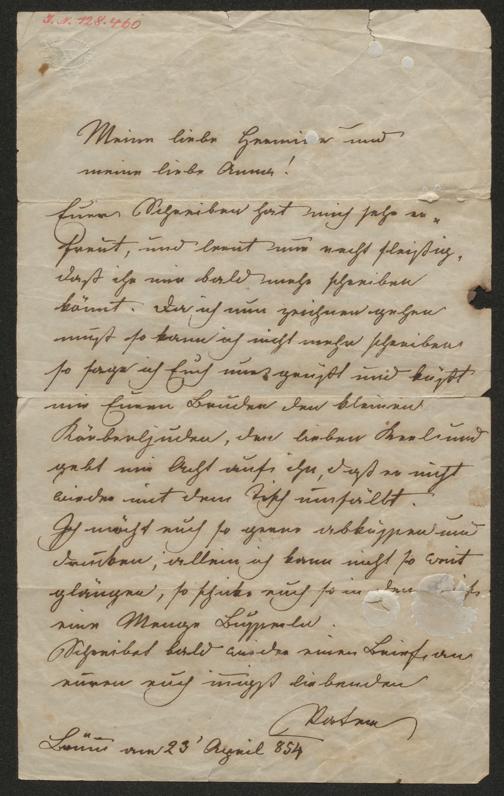 J. N. 128.460
Meine liebe Hermine und
meine liebe Anna!
Euer Schreiben hat mich sehr er-
freut, und lernt nur recht fleißig,
daß ihr mir bald mehr schreiben
könnt. Da ich nun zeichnen gehen
muß so kann ich nicht mehr schreiben
so sage ich Euch nur gegrüßt und küßt
mir Euern Bruder den kleinen
den lieben Karl und
gebt mir Acht auf ihn, daß er nicht
wieder mit dem Tisch umfällt.
Ich möcht euch so gerne abküssen und
drucken, allein ich kann nicht so weit
glangen, so schicke euch so in den
eine Menge Busserln.
Schreibet bald wieder einen Brief an
euren euch innigst liebenden
Vater
Brünn am 23' April 854